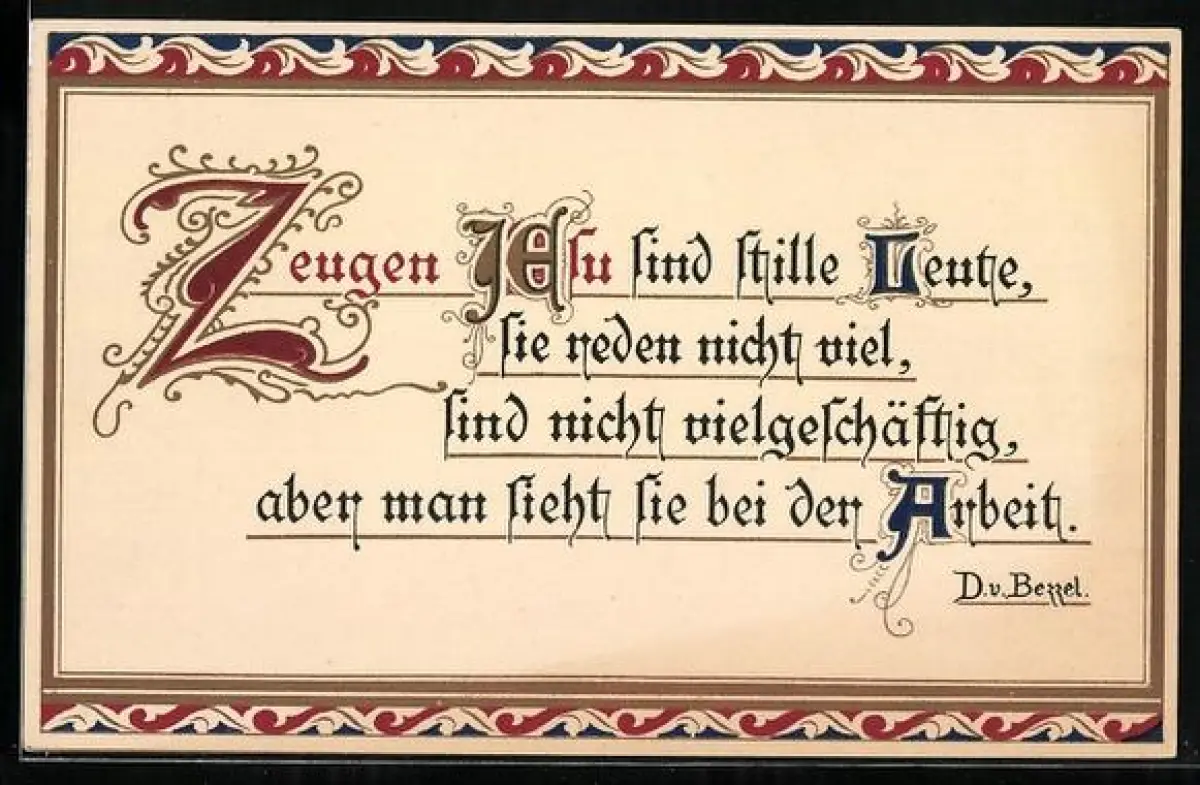 Zeugen JEsu sind stille Leute,
sie reden nicht viel,
sind nicht vielgeschäftig,
aber man sieht sie bei der Arbeit.
D. v. Bezzel.